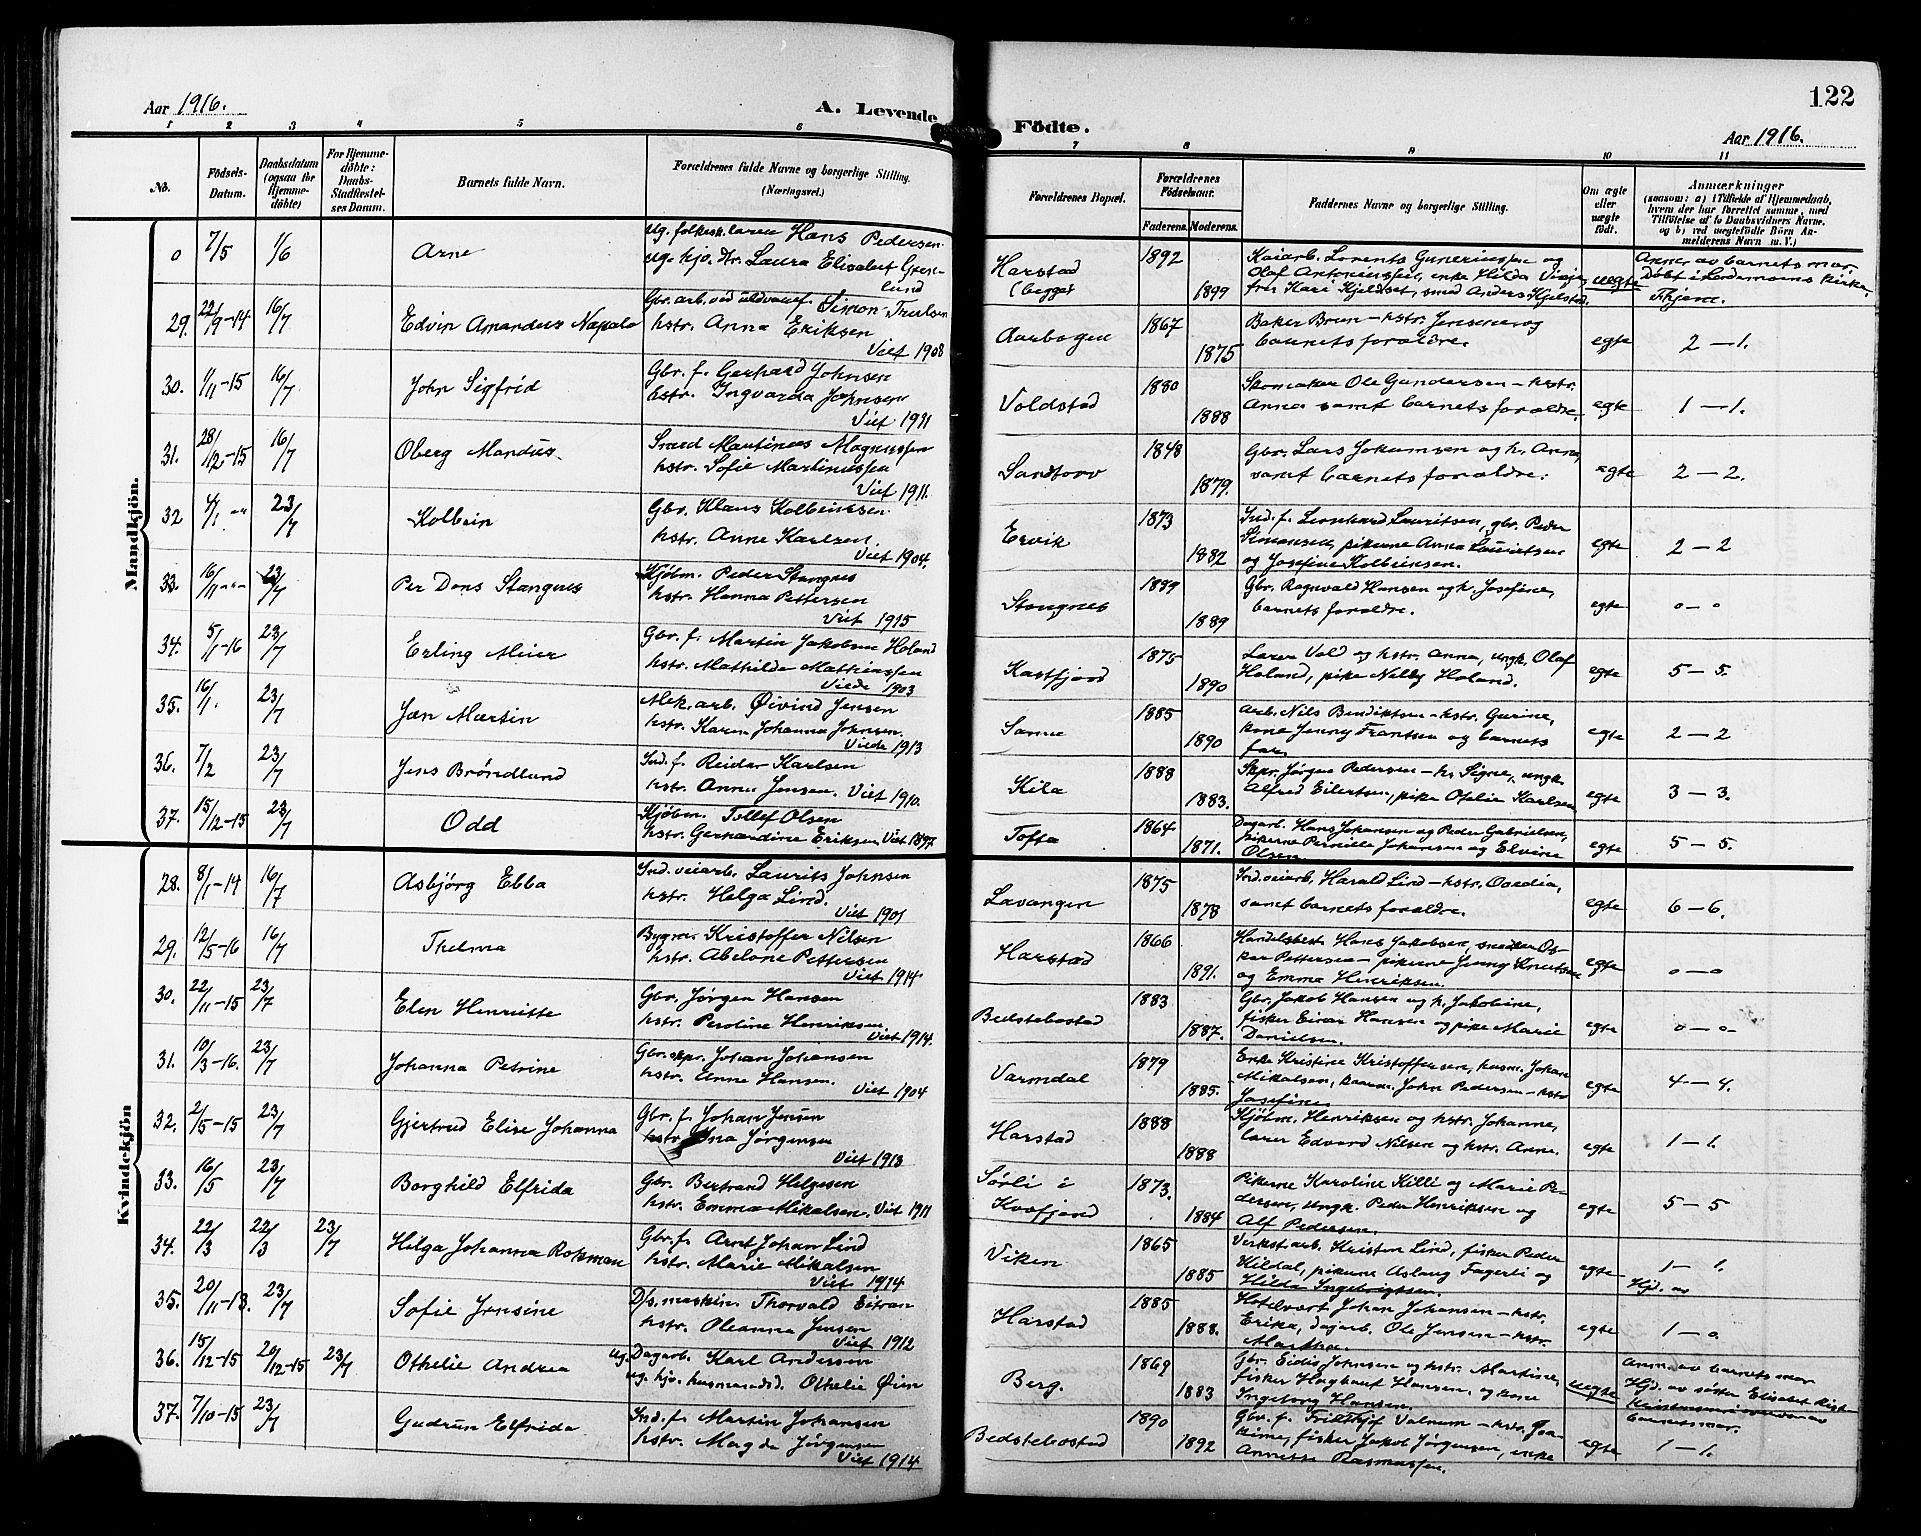 122
Aar 1916.
A. Levende Födte.
Aar 1916.
1 2 3 4 5 6 7 8 9 10 11
No.
Födsels-Datum.
Daabsdatum (ogsaa for Hjemmedöbte)
For Hjemmedöbte: Daabs-Stadfæstelses Datum.
Barnets fulde Navn.
Forældrenes fulde Navne og borgerlige Stilling. (Næringsvei.)
Forældrenes Bopæl.
Forældrenes Födselsaar.
Faderens. Moderens.
Faddernes Navne og borgerlige Stilling.
Om ægte eller uægte födt.
Anmærkninger
(saasom: a) i Tilfælde af Hjemmedaab, hvem der har forrettet samme, med Tilföielse af to Daabsvidners Navne, og b) ved uægtefödte Börn Anmelderens Navn m. V.)
Mandkjön.
0 7/5 1/6 Arne
ug. folkesk.lærer Hans Pedersen
ug. hjv. dr. Laura Elisabet Grenlund
Harstad (begge) 1892 1899
Kaiarb. Lorents Guneriussen og
Olaf Antoniussen, enke Hilda
fru Kari Kjeldset, smed Anders Kjelstad
uegte
Anm. av barnets mor.
Døbt i kirke,
29. 22/9-14 16/7 Edvin Amandus
Gbr. arb. ved Simon Trulsen
hstr. Anna Eriksen
Viet 1908
Aarbogen 1867 1875
Baker Brun - hstr. Jensine og
barnets foraldre.
egte 2-1.
30. 1/11-15 16/7 John Sigfrid
Gbr. f. Gerhard Johnsen
hstr. Ingvarda Johnsen
Viet 1911
Voldstad 1880 1888
Skomaker Ole Gundersen - hstr.
Anna samt barnets foraldre.
egte 1-1.
31. 28/12-15 16/7 Oberg Mandus.
Smed Martinus Magnussen
hstr. Sofie Martinussen
Viet 1911.
Sandtorv 1848 1879.
Gbr. Lars Jakamsen og h. Anna,
samt barnets foraldre.
egte 2-2.
32 4/1 " 23/7 Kolbein
Gbr. Klaus Kolbeinsen
hstr. Anne Karlsen.
Viet 1904.
Ervik 1873 1882
Ind. f. Leonhard Lauritsen, gbr. Peder
Simonsen, pikerne Anna Lauritsen
og Josefine Kolbeinsen.
egte 2-2
33. 16/11 " 23/7 Per Dons Stangnes
Kjøbm. Peder Stangnes
hstr. Hanna Pettersen
Viet 1915
Stangnes 1889 1889
Gbr. Ragnvald Hansen og h. Josefine,
barnets foraldre.
egte 0-0
34. 5/1-16 23/7 Erling Meier
Gbr. f. Martin Jakobsen Holand
hstr. Mathilde Mathiassen
Viede 1903
Kasfjord 1875 1890
Lærer Vold og hstr. Anna, ungk. Olaf
Holand, pike Nelly Holand.
egte 5-5.
35. 16/1. 23/7 Jan Martin
Mek. arb. Øivind Jensen
hstr. Karen Johanna Johnsen.
Viede 1913
Sama 1885 1890
Arb. Nils Bendiktsen - hstr. Gurine,
kone Jenny Frantsen og barnets
far.
egte 2-2
36. 7/2 23/7 Jens Brøndlund
Ind. f. Reidar Karlsen
hstr. Anna Jensen. Viet 1910.
Kila 1888 1883.
Skpr. Jørgen Pedersen - h. Signe, ungk.
Alfred Eilertsen, pike Otelie Karlsen
egte 3-3.
37. 15/12-15 23/7 Odd
Kjøbm. Tollef Olsen
hstr. Gerhardine Eriksen Viet 1897
Tofta 1864 1871.
Dagarb. Hans Johansen og Peder Gabrielsen,
pikerne Pernille Johansen og Elvine
Olsen
egte 5-5.
Kvindekjön
28. 8/1-14 16/7 Asbjörg Ebba
Ind. veiarb. Laurits Johnsen
hstr. Helga Lind.
Viet 1901
Lavangen 1875 1878
Ind. veiarb. Harald Lind - hstr. Ovedia,
samt barnets foraldre.
egte 6-6.
29. 12/5-16 16/7 Thelma
Bygm. Kristoffer Nilsen
hstr. Abelone Pettersen
Viet 1914
Harstad 1866 1891.
Handelsbest. Hans Jakobsen, snedker Oskar
Pettersen - pikerne Jenny Knutsen
og Emma Henriksen.
egte 0-0
30. 22/11-15 23/7 Elen Henriette
Gbr. Jørgen Hansen
hstr. Peroline Henriksen
Viet 1914.
Bedstebostad 1883 1887.
Gbr. Jakob Hansen og h. Jakobine,
fisker Einar Hansen og pike Marie
Danielsen.
egte 0-0-
31. 10/3-16. 23/7 Johanna Petrine
Gbr. skpr. Johan Johansen
hstr. Anne Hansen.
Viet 1904
Varmdal 1879 1885.
Enke Kristine Kristoffersen, husm. Johan
Mikalsen, kaarm. John Pedersen - hstr
Josefine.
egte 4-4.
32. 2/5-15 23/7 Gjertrud Elise Johanna
Gbr. f. Johan Jensen
hstr. Ina Jørgensen
Viet 1913
Harstad 1888 1888
Kjøbm. Henriksen og hstr. Johanne,
lærer Edvard Nilsen og hstr. Anne.
egte 1-1.
33. 16/5 23/7 Borghild Elfrida
Gbr. Bertrand Helgesen
hstr. Emma Mikalsen. Viet 1911
Sørli i Kvæfjord 1873. 1884
Pikerne Karoline Killi og Marie Pedersen,
ungk. Peder Henriksen og
Alf Pedersen.
egte 5-5
34. 22/3 22/3 23/7 Helga Johanna Roksman
Gbr. f. Arnt Johan Lind
hstr. Marie Mikalsen
Viet 1914
Viken 1865 1885
Verkstarb. Kristen Lind, fisker Peder
Hildal, pikerne Aslaug Fagerli og
Hilda Ingebrigtsen.
egte 1-1.
Hjd. av
35. 20/11-13. 23/7 Sofie Jensine
D/s. maskin. Thorvald Eitran
hstr. Oleanna Jensen
Viet 1912
Harstad 1885 1888.
Hotelvært Johan Johansen - hstr.
Erika, dagarb. Ole Jensen - hstr.
Martha.
egte 1-0
36. 15/12-15 20/12-15 23/7 Othelie Andrea
ug. Dagarb. Karl Andersen
ug. hjv. husmansd. Othelie Øien
Berg. 1869 1883
Gbr. Eidis Johnsen og hstr. Martine,
fisker Hagbart Hansen, og kone
Ingeborg Hansen.
uegte
Anm. av barnets mor
Hjd. av søster Elisabet
barnets mor.
37. 7/10-15 23/7 Gudrun Elfrida
Ind. f. Martin Johansen
hstr. Magda Jørgensen
Viet 1914
Bedstebostad 1890 1892
Gbr. f. Fritthjof Valnum - hstr. Joakime,
fisker Jakob Jørgensen, enke
Annette Rasmussen.
egte 1-1.